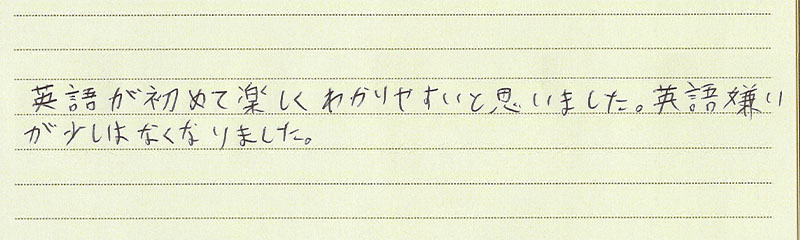 英語が初めて楽しくわかりやすいと思いました。英語嫌い
が少しはなくなりました。